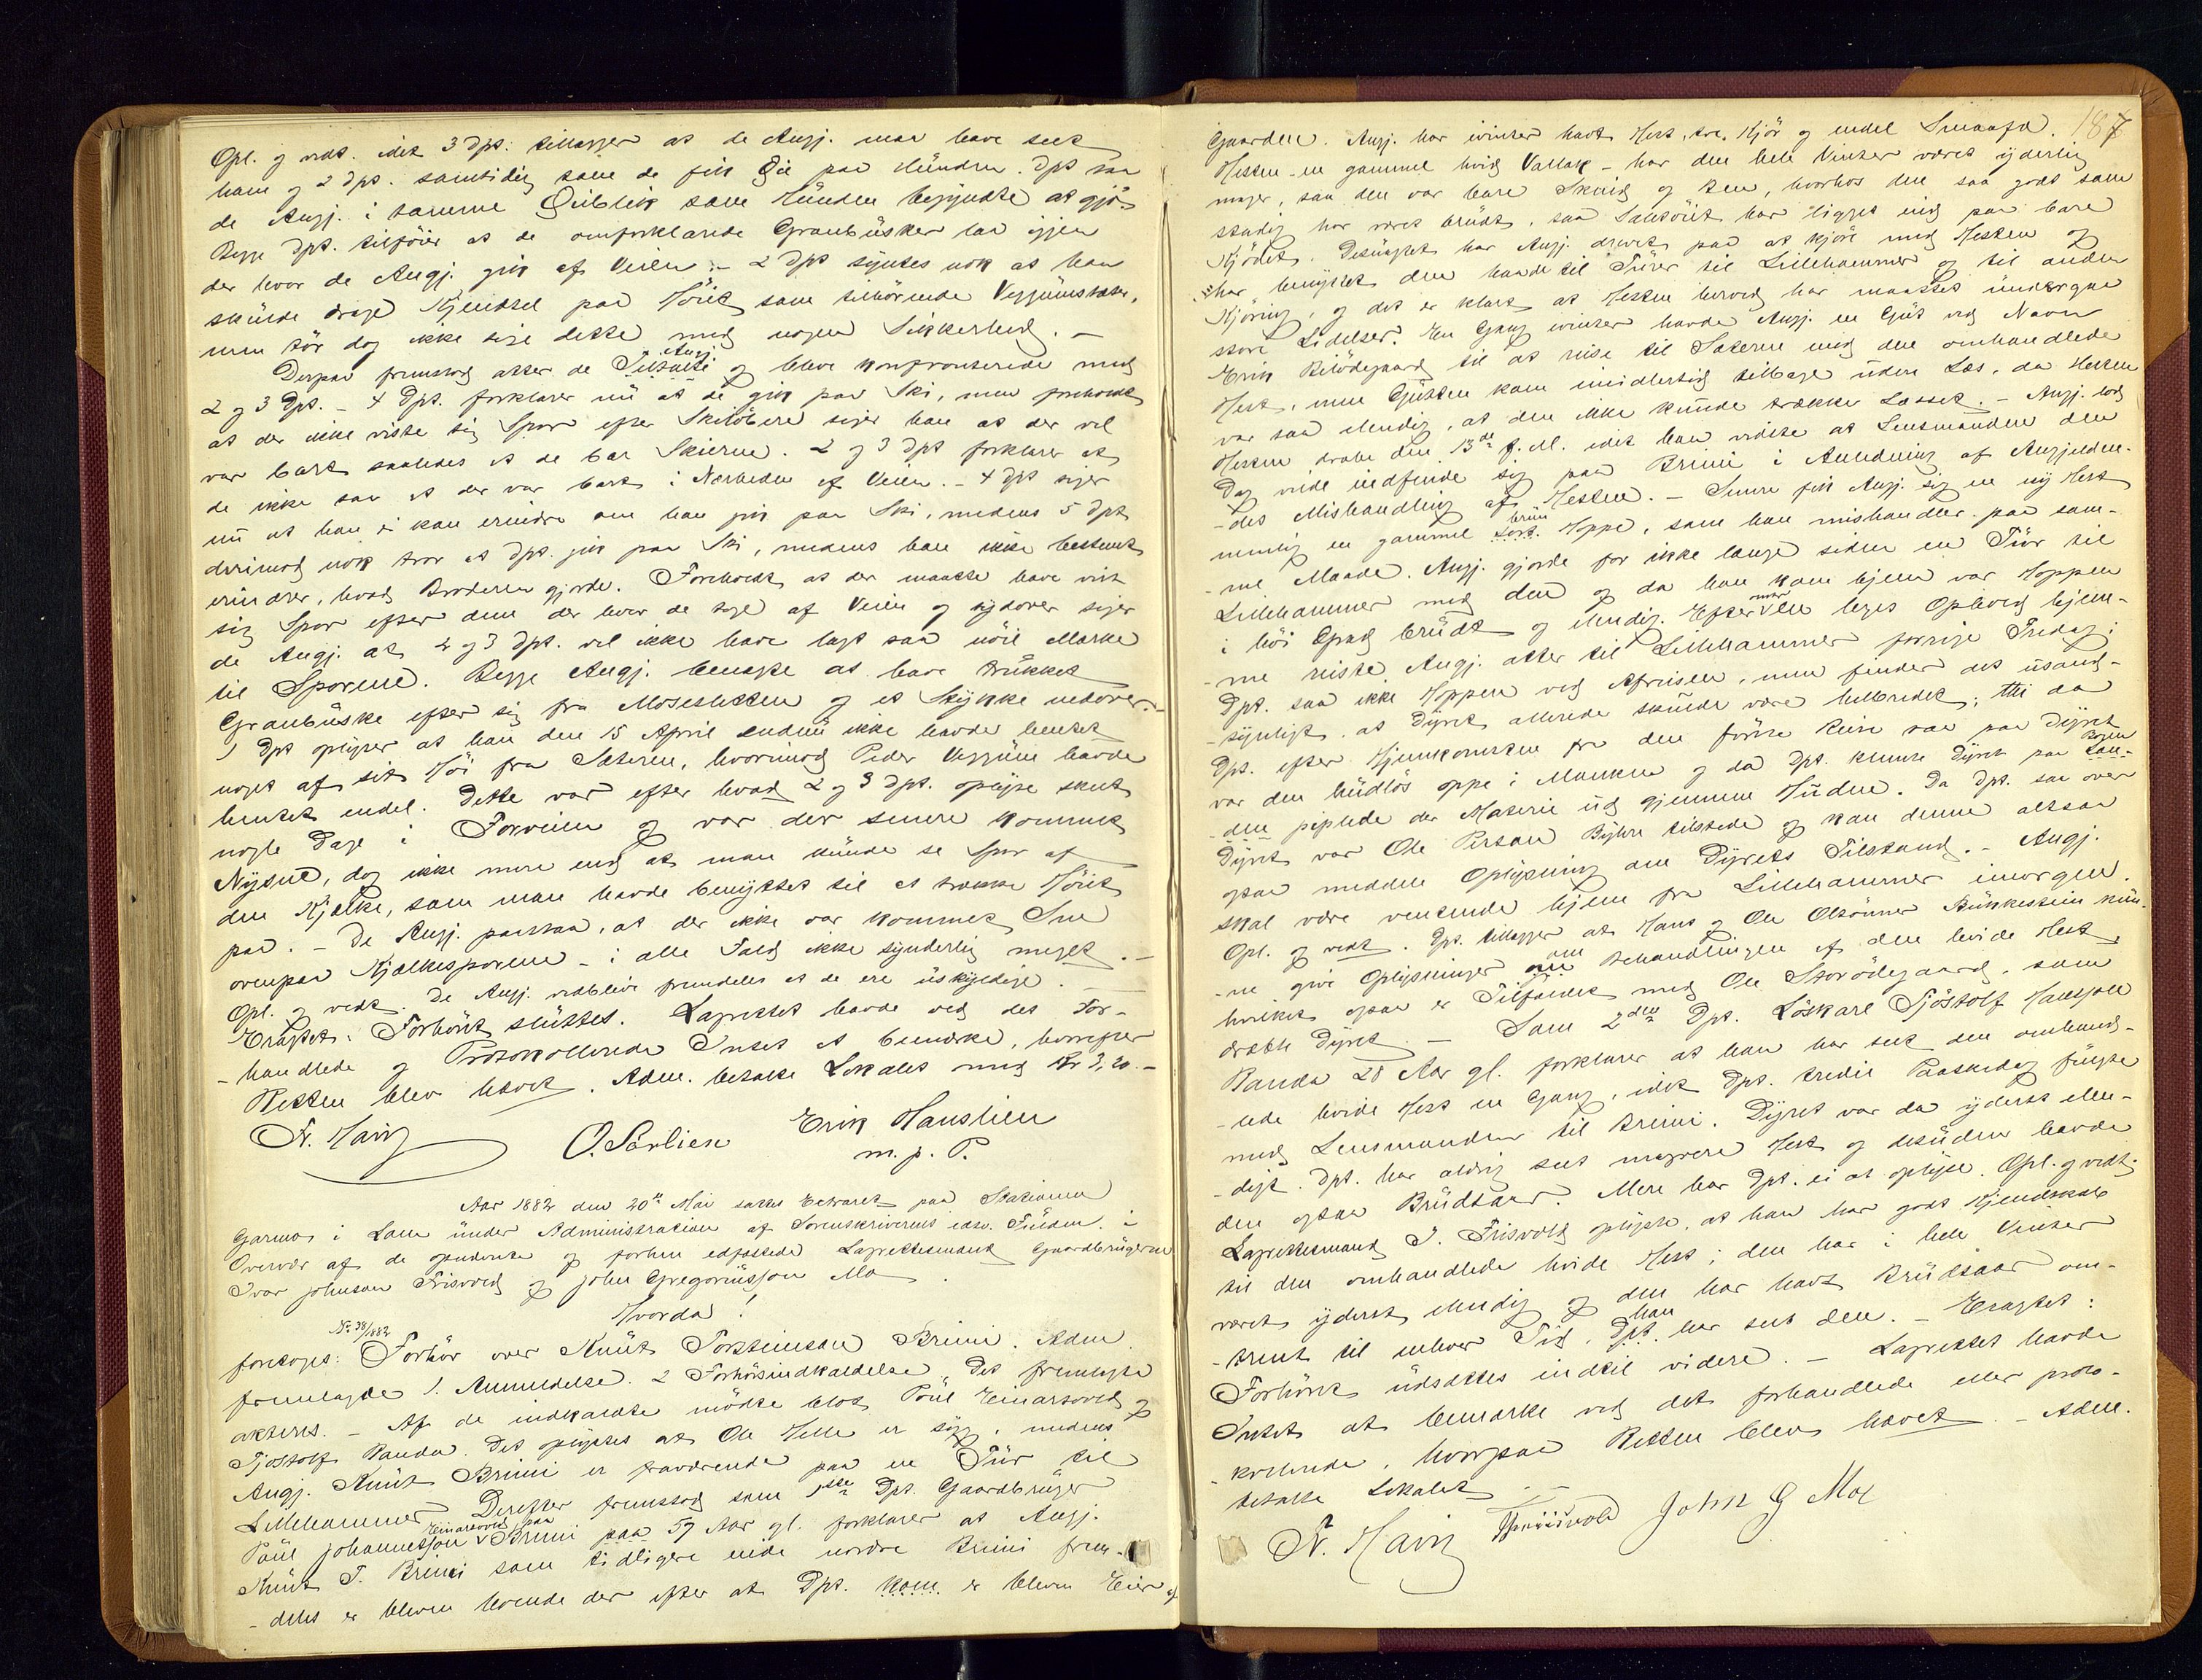 Opl. og vedt. idet 3 Dpt. tillægger at de Angj. maa have seet
ham og 2 Dpt. samtidig som de fik Øie paa Hunden. Dpt saa
de Angj. i samme Øieblik som Hunden begyndte at gjø.
Begge Dpt. tilføier at de omforklarede Granbusker laa igjen
der hvor de Angj. gik af Veien. – 2 Dpt syntes nok at han
skulde drage Kjendsel paa Høiet som tilhørende Veggumsæter,
men tør dog ikke sige dette med nogen Sikkerhed. –
Derpaa fremstod atter de Tiltalte Angj. og bleve konfronterede med
2 og 3 Dpt. – 4 Dpt. forklarer nu at de gik paa Ski, men foreholdt
at der ikke viste sig Spor efter Skiløbere siger han at der vel
var bart saaledes at de bar Skierne. 2 og 3 Dpt forklarer at
de ikke saa at der var bart i Nærheden af Veien. – 4 Dpt siger
nu at han ei kan erindre om han gik paa Ski, medens 5 Dpt
derimod nok tror at Dpt. gik paa Ski, medens han ikke bestemt
erindrer, hvad Broderen gjorde. Foreholdt at der maatte have vist
sig Spor efter dem der hvor de toge af Veien og sydover siger
de Angj. at 2 og 3 Dpt. vel ikke have lagt saa nøie Mærke
til Sporene. Begge Angj. benegte at have trukket
Granbuske efter sig fra Moseslætten og et Stykke nedover. –
1 Dpt oplyser at han den 15 April endnu ikke havde hentet
noget af sit Høi fra Sæteren, hvorimod Peder Veggum havde
hentet endel. Dette var efter hvad 2 og 3 Dpt. oplyse skeet
nogle Dage i Forveien og var der senere kommet
Nysne, dog ikke mere end at man kunde se Spor af
den Kjælke, som man havde benyttet til at trække Høiet
paa. – De Angj. paastaa, at der ikke var kommet Sne
ovenpaa Kjælkesporene – i alle Fald ikke synderlig meget. –
Opl. og vedt. De Angj. vedblive fremdeles at de ere uskyldige. –
Eragtet: Forhøret sluttes. Lagrettet havde ved det For-
-handlede og Protokollerede Intet at bemærke, hvorefter
Retten blev hævet. Adm. betalte Lokalet med Kr 3,20. –
Fr. Hairg O. Sørlien Erik Hanslien
m. p. P.
Aar 1882 den 20de Mai sattes Extraret paa Skatsionen
Garmo i Lom under Administration af Sorenskriverens edsv. Fuldm. i
Overvær af de opnævnte og forhen edfæstede Lagrettesmænd Gaardbrugerne
Ivar Johnsen Frisvold og John Gregoriussøn Mo.
Hvorda!
No. 38/1882
foretoges: Forhør over Knut Torsteinsøn Brimi. Adm.
fremlagde 1. Anmeldelse. 2 Forhørsindkaldelse. Det fremlagte
akteres. – Af de indkaldte mødte blot Poul Einarsvold og
Tjøstolf Randa. Det oplystes at Ole Helle er syg, medens
Angj. Knut Brimi er fraværende paa en Tur til
Lillehammer. Derefter fremstod som 1ste Dpt. Gaardbruger
Poul Johannessøn Einarsvold paa Brimi paa 59 Aar gl. forklarer at Angj.
Knut T. Brimi som tidligere eiede nordre Brimi frem-
-deles er bleven boende der efter at Dpt. kom er bleven Eier af
187
Gaarden. Angj. har ivinter havt Hest, tre Kjør og endel Smaafæ.
Hesten – en gammel hvid Vallak – har den hele Vinter været yderlig
mager, saa den var bare Skind og Ben, hvorhos den saa godt som
stadig har været brudt, saa Seletøiet har ligget ind paa bare
Kjødet. Desuagtet har Angj. drevet paa at kjøre med Hesten og
har benyttet den baade til Turer til Lillehammer og til anden
Kjøring, og det er klart at Hesten herved har maattet undergaa
store Lidelser. En Gang ivinter havde Angj. en Gut ved Navn
Erik Bilødegaard til at reise til Sæteren med den omhandlede
Hest, men Gutten kom imidlertid tilbage uden Læs, da Hesten
var saa elendig, at den ikke kunde trække Læsset. – Angj. lod
Hesten dræbe den 13de f. M. idet han vidste at Lensmanden den
Dag vilde indfinde sig paa Brimi i Anledning af Angjelden-
-des Mishandling af Hesten. – Senere fik Angj. sig en ny Hest
nemlig en gammel sort brun Hoppe, som han mishandler paa sam-
-me Maade. Angj. gjorde for ikke længe siden en Tur til
Lillehammer med den og da han kom hjem var Hoppen
i høi Grad brudt og elendig. Efter noar en Uges Ophold hjem-
-me reiste Angj. atter til Lillehammer forrige Fredag;
Dpt. saa ikke Hoppen ved Afreisen, men finder det usand-
-synligt, at Dyret allerede skulde være helbredet; thi da
Dpt. efter Hjemkomsten fra den første Reise saa paa Dyret
var den hudløs oppe i Manken og da Dpt. klemte Dyret paa Bogen Læn-
-den piplede der Materie ud gjennem Huden. Da Dpt. saa over
Dyret var Ole Person Byhre tilstede og kan denne altsaa
ogsaa meddele Oplysning om Dyrets Tilstand. – Angj.
skal være ventende hjem fra Lillehammer imorgen.
Opl. og vedt. Dpt. tillægger at Hans og Ole Olsønner Bukkestein kun-
-ne give Oplysninger om Behandlingen af den hvide Hest,
hvilket ogsaa er Tilfældet med Ole Storødegaard, som
dræbte Dyret. – Som 2den Dpt. Løskarl Tjøstolf Hanssøn
Randa 28 Aar gl. forklarer at han har seet den omhand-
-lede hvide Hest en Gang, idet Dpt. tredie Paaskedag fulgte
med Lensmanden til Brimi. Dyret var da yderst elen-
-digt. Dpt. har aldrig seet magrere Hest og desuden havde
den ogsaa Brudsaar. Mere har Dpt. ei at oplyse. Opl. og vedt.
Lagrettesmand I. Frisvold oplyste, at han har godt Kjendskab
til den omhandlede hvide Hest; den har i hele Vinter
været yderst elendig og den har havt Brudsaar om-
-trent til enhver Tid, Dpt. han har seet den. – Eragtet:
Forhøret udsættes indtil videre. – Lagrettet havde
Intet at bemærke ved det forhandlede eller proto-
-kollerede, hvorpaa Retten blev hævet. – Adm.
betalte Lokalet. –
Fr. Hairg Frisvold John G Mo